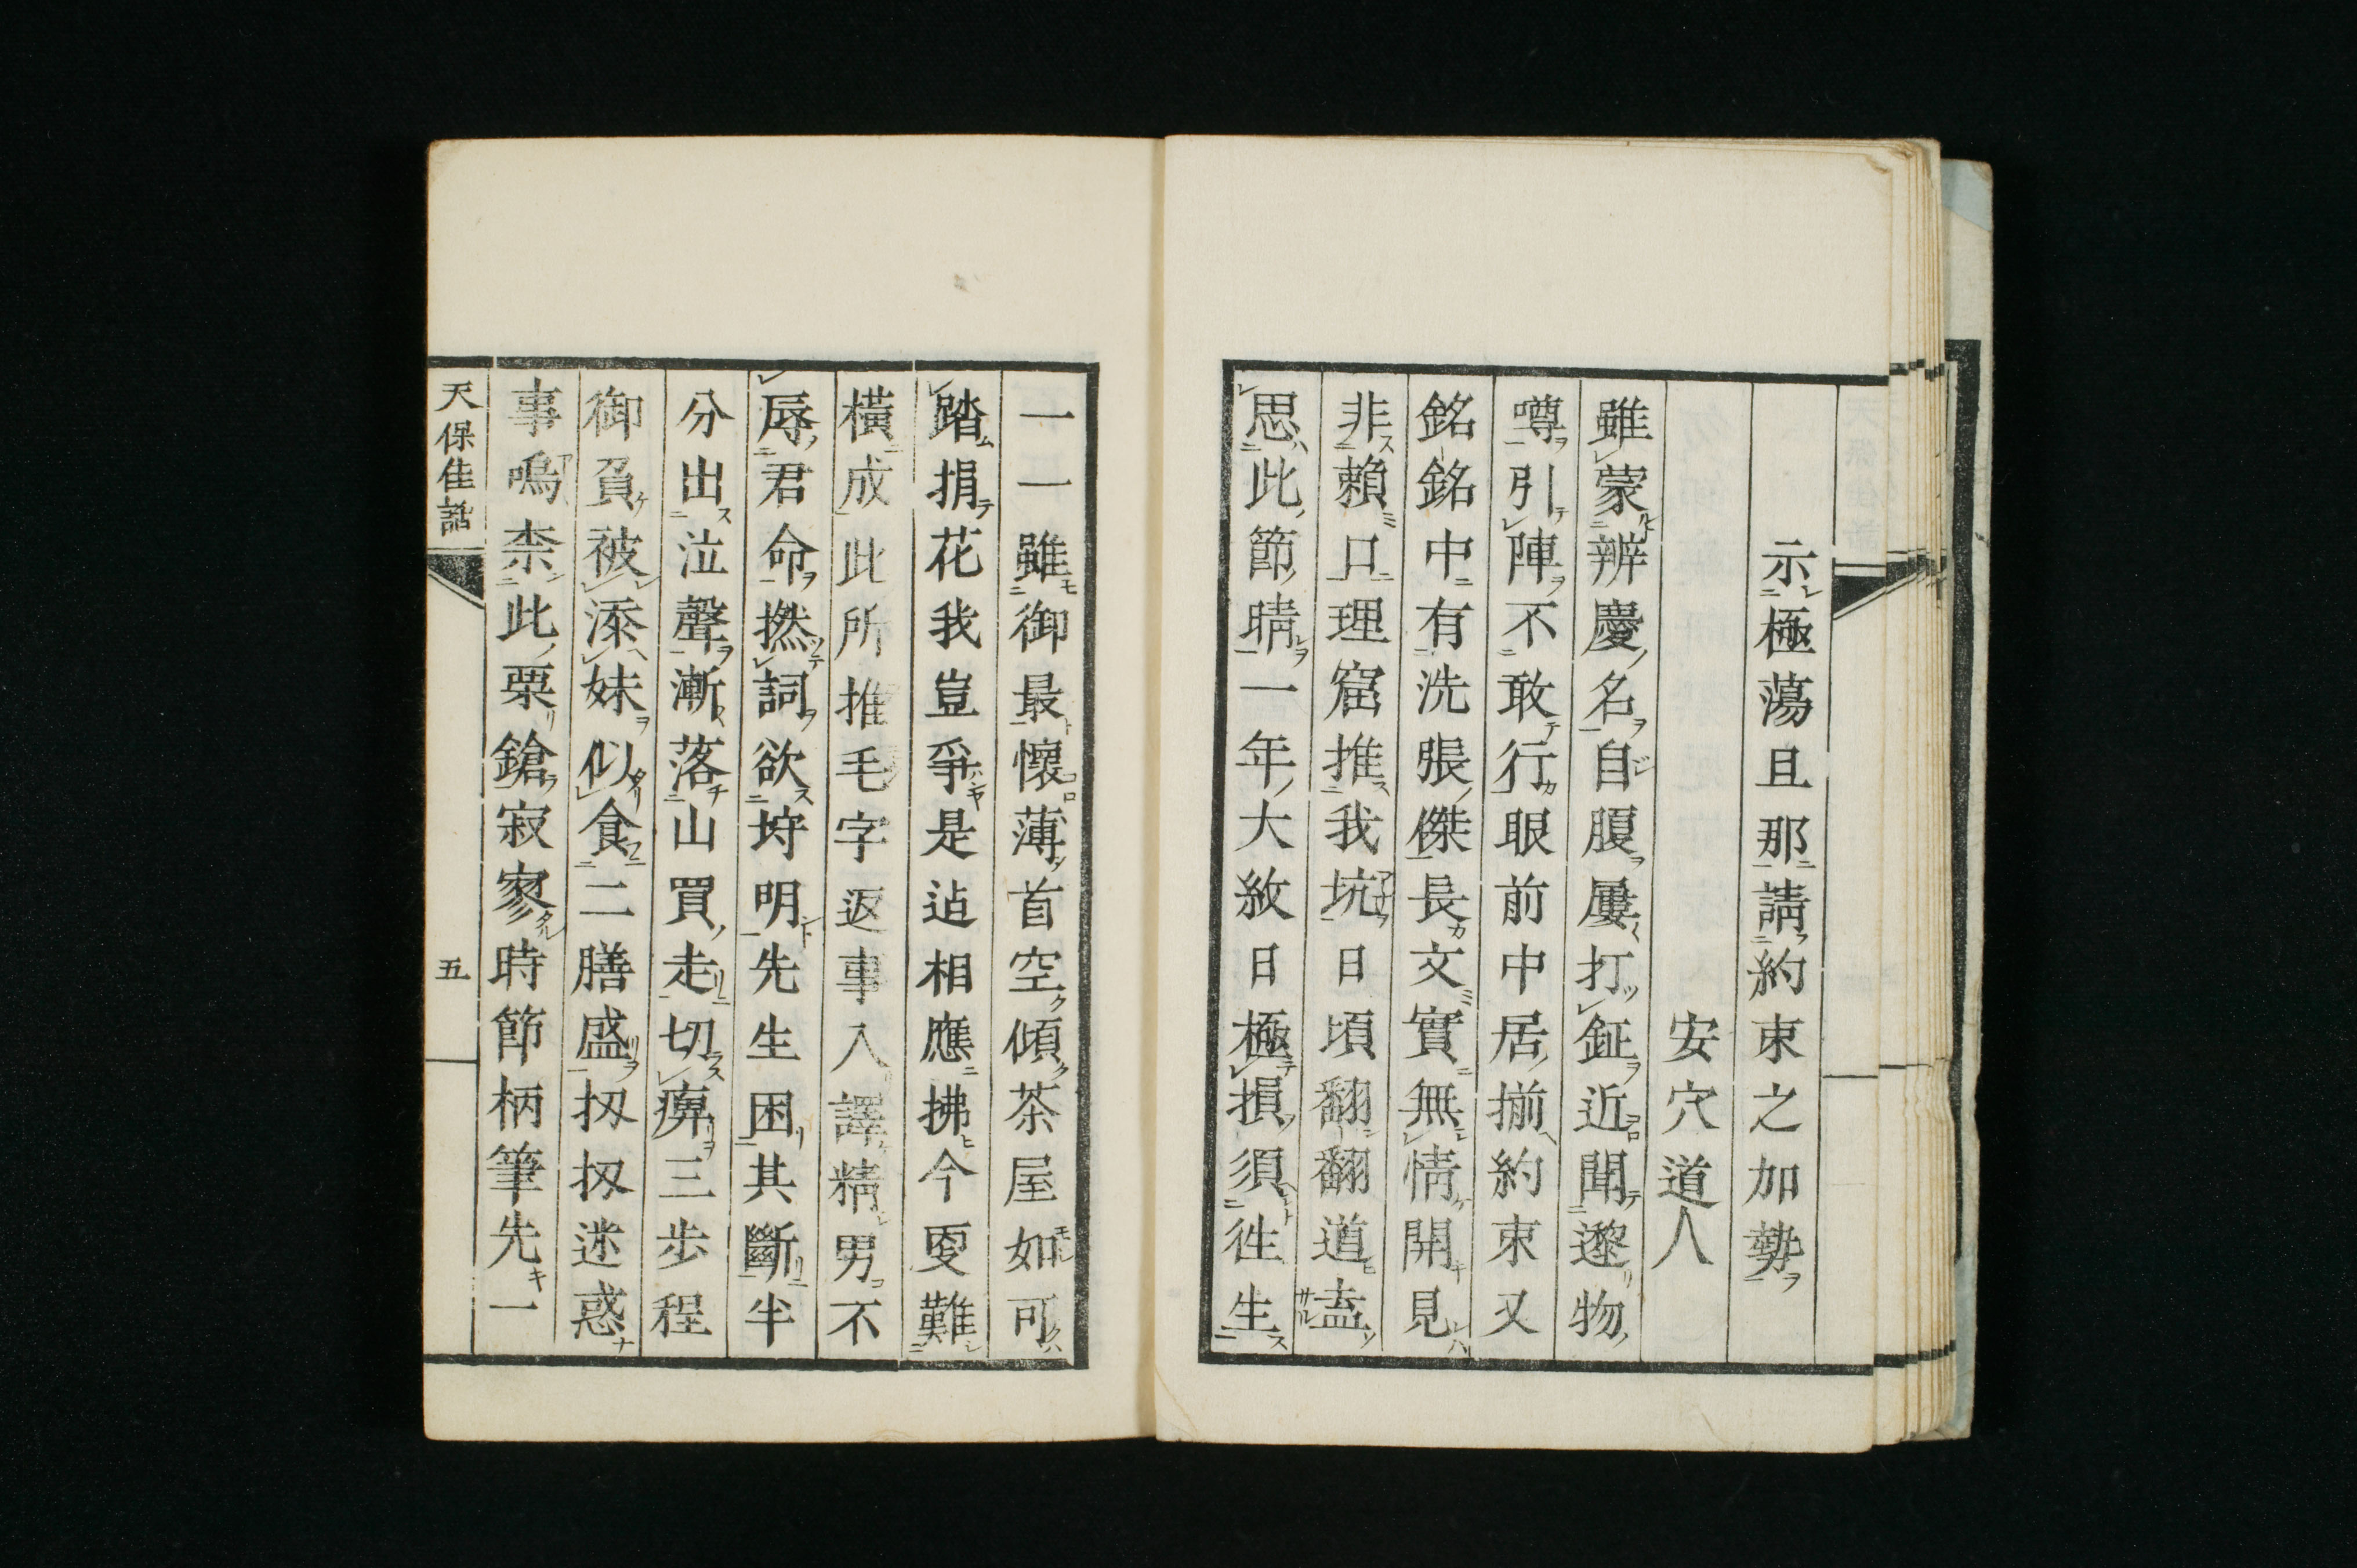 示極蕩且那請約束之加勢
安穴道人
雖蒙辨慶名自腹屢打鉦近聞邌物
噂引陣不敢行眼前中居揃約束又
銘銘中有洗張傑長文實無情開見
非賴口理窟推我坑日頃翻翻道盍
思此節晴一年大敘日極損須徃生
一一雖御最懷薄首空傾茶屋如可
踏捐花我豈爭是迠相應拂今更難
横成此所推毛字返事入譯精男不
辱君命撚詞欲垨明先生困其斷半
分出泣聲漸落山買走切痹三步程
御負被添妹似食二膳盛扨扨迷惑
事嗚柰此栗鎗寂寥時節柄筆先一
天保佳話
五